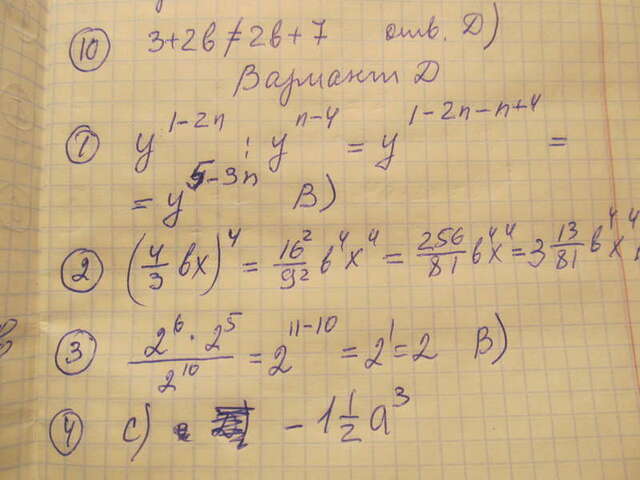 ⑩ 3+2в≠2в+7 отв. Д)
Вариант Д
① y^{1-2n} : y^{n-4} = y^{1-2n-n+4} =
= y^{5-3n} В)
② (4/3 вx)^4 = 16²/9² в⁴x⁴ = 256/81 в⁴x⁴ = 3 13/81 в⁴x⁴
③ 2⁶·2⁵/2¹⁰ = 2^{11-10} = 2¹ = 2 В)
④ С) -1 1/2 a³